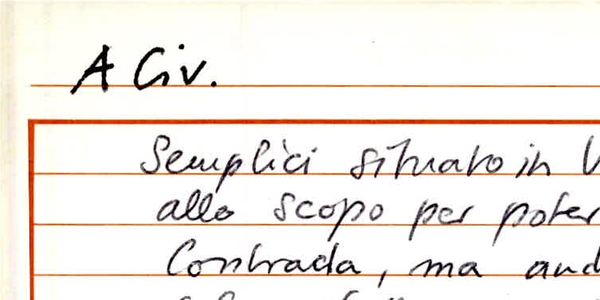 A Civ.
Semplici situato in
allo scopo per poter
Contrada, ma